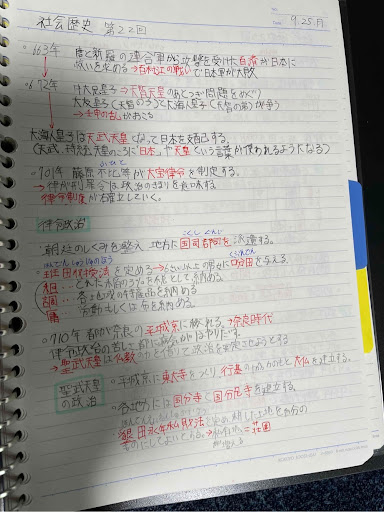 社会歴史 第22回
9.25.月
・663年 唐と新羅の連合軍から攻撃を受けた百済が日本に
救いを求める→白村江の戦いで日本軍が大敗
・672年 中大兄皇子→天智天皇のあとつぎ問題をめぐり
大友皇子(天智の子)と大海人皇子(天智の弟)が争う
→壬申の乱がおこる
大海人皇子は天武天皇となって日本を支配する。
(天武、持統天皇のころに「日本」や天皇という言葉が使われるようになる)
ふひと
・701年 藤原不比等が大宝律令を制定する。
→律が刑罰令は政治のきまりを意味する
律令制度が確立していく。
律令政治
こくし ぐんじ
・朝廷のしくみを整え 地方に国司郡司を派遣する。
はんでんしゅうじゅのほう
くぶんでん
・班田収授法を定める→6さい以上の男女に口分田を与える。
租… とれた稲の
調… 各地域の特産品を納める
庸 労働もしくは布を納める
・710年 都が奈良の平城京に移される。→奈良時代
律令政治の苦しさ
→聖武天皇は仏教の力を借りて政治を安定させようとする
聖武天皇
の政治
・平城京に東大寺をつくり 行基の協力のもと大仏を建立する。
・各地方には国分寺と国分尼寺を建立する。
墾田永年私財法
→荘園